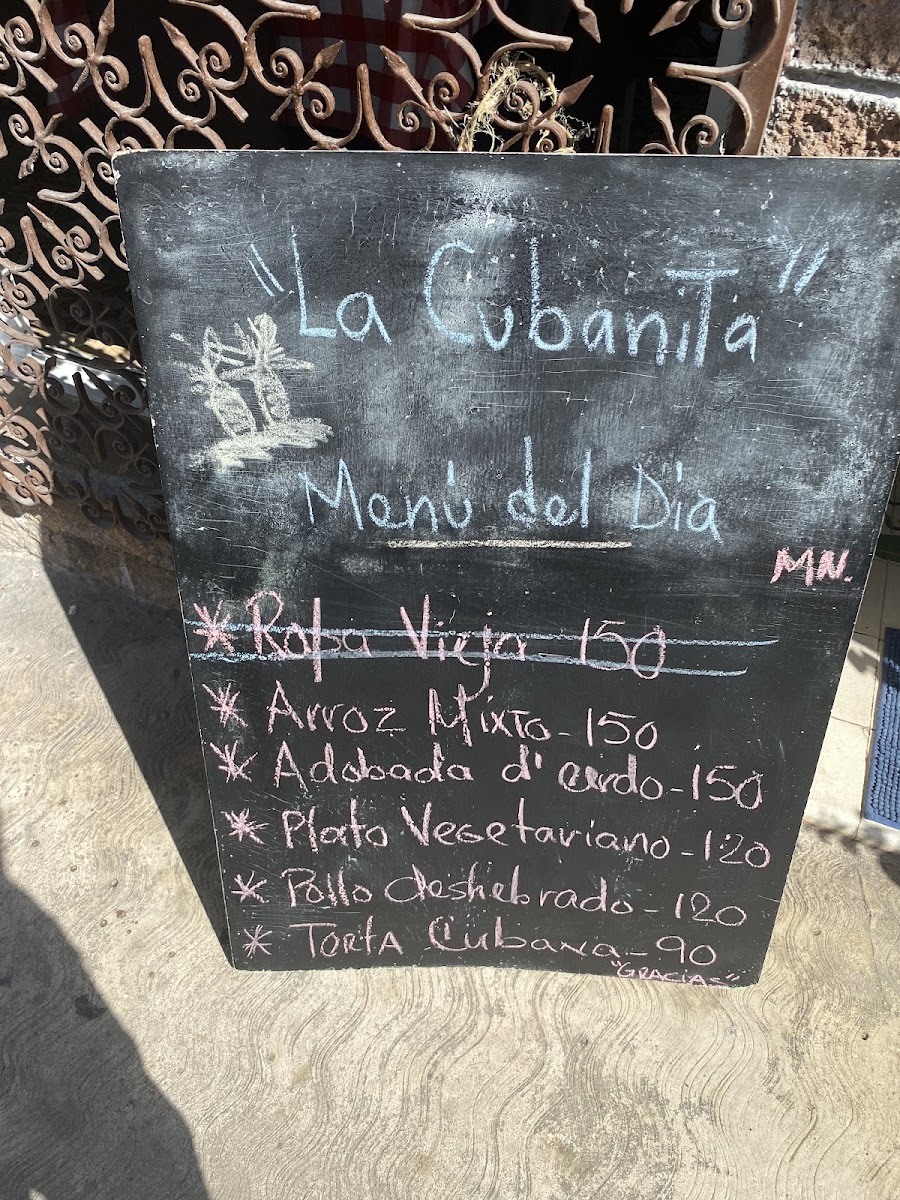 "La Cubanita"
Menú del Dia
MN.
* Ropa Vieja - 150
* Arroz Mixto - 150
* Adobada d' cerdo - 150
* Plato Vegetariano - 120
* Pollo deshebrado - 120
* Torta Cubana - 90
"GRACIAS"